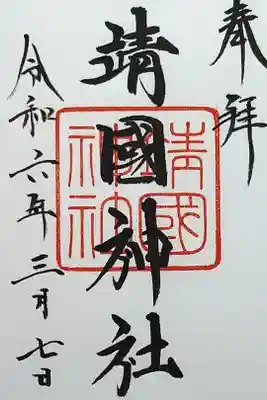 奉拝
靖國神社
令和六年三月七日
靖國神社